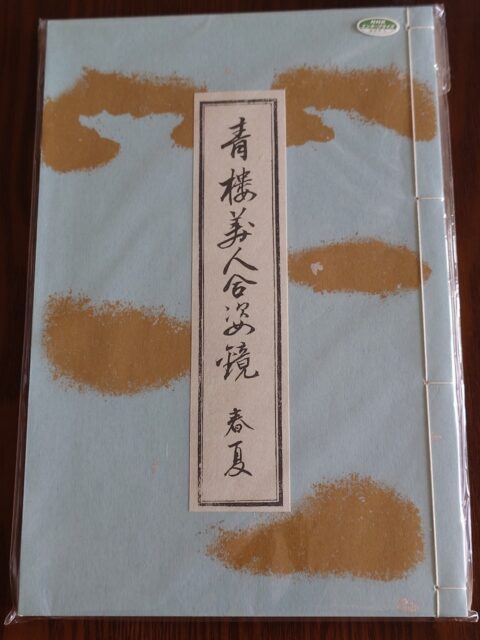 青楼美人合姿鏡 春夏